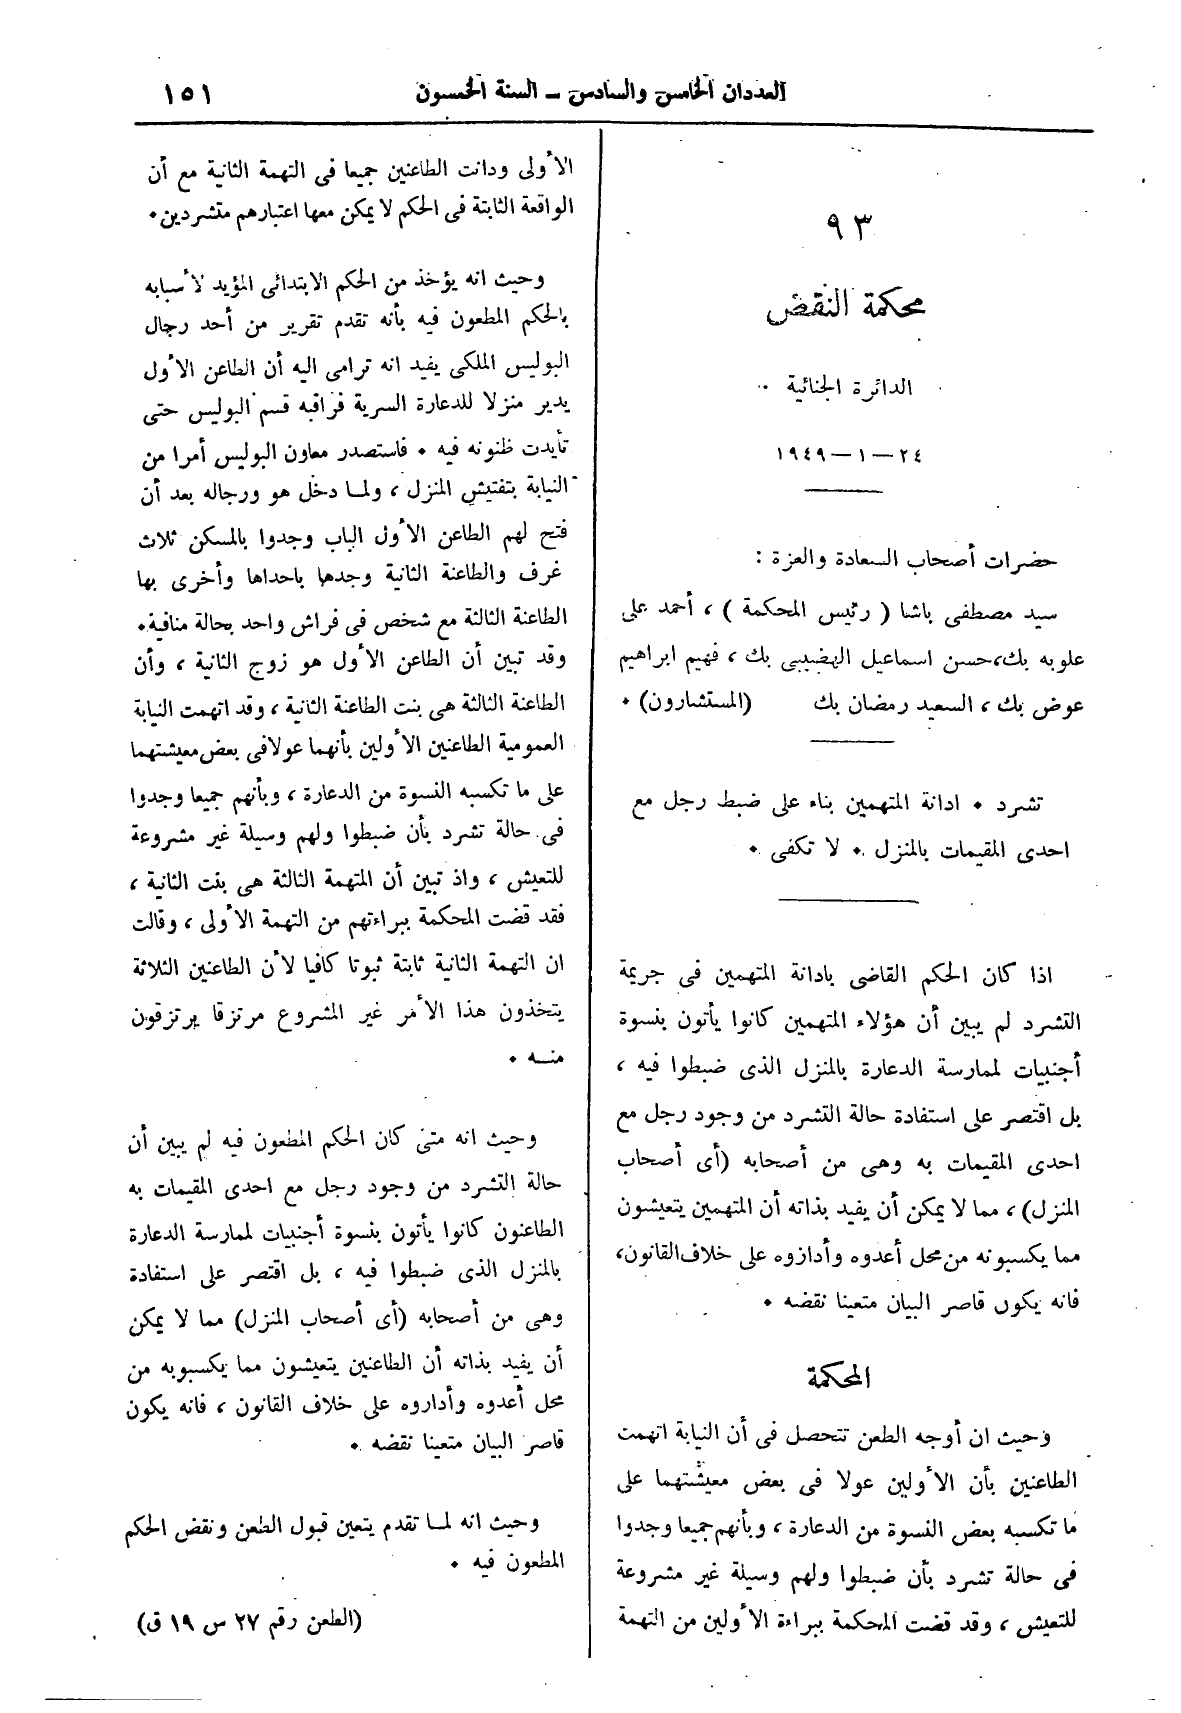 العددان الخامس والسادس – السنة الخمسون
١٥١
٩٣
محكمة النقض
الدائرة الجنائية
٢٤ – ١ – ١٩٤٩
حضرات أصحاب السعادة والعزة :
سيد مصطفى باشا ( رئيس المحكمة ) ، أحمد على
علوبه بك، حسن اسماعيل الهضيبى بك ، فهيم ابراهيم
عوض بك ، السعيد رمضان بك (المستشارون) .
تشرد . ادانة المتهمين بناء على ضبط رجل مع
احدى المقيمات بالمنزل . لا تكفى .
اذا كان الحكم القاضى بادانة المتهمين فى جريمة
التشرد لم يبين أن هؤلاء المتهمين كانوا يأتون بنسوة
أجنبيات لممارسة الدعارة بالمنزل الذى ضبطوا فيه ،
بل اقتصر على استفادة حالة التشرد من وجود رجل مع
احدى المقيمات به وهى من أصحابه (أى أصحاب
المنزل) ، مما لا يمكن أن يفيد بذاته أن المتهمين يتعيشون
مما يكسبونه من محل أعدوه وأدازوه على خلاف القانون،
فانه يكون قاصر البيان متعينا نقضه .
المحكمة
وحيث ان أوجه الطعن تتحصل فى أن النيابة اتهمت
الطاعنين بأن الأولين عولا فى بعض معيشتهما على
ما تكسبه بعض النسوة من الدعارة ، وبأنهم جميعا وجدوا
فى حالة تشرد بأن ضبطوا ولهم وسيلة غير مشروعة
للتعيش ، وقد قضت المحكمة ببراءة الأولين من التهمة
الأولى ودانت الطاعنين جميعا فى التهمة الثانية مع أن
الواقعة الثابتة فى الحكم لا يمكن معها اعتبارهم متشردين .
وحيث انه يؤخذ من الحكم الابتدائى المؤيد لأسبابه
بالحكم المطعون فيه بأنه تقدم تقرير من أحد رجال
البوليس الملكى يفيد انه ترامى اليه أن الطاعن الأول
يدير منزلا للدعارة السرية فراقبه قسم البوليس حتى
تأيدت ظنونه فيه . فاستصدر معاون البوليس أمرا من
النيابة بتفتيش المنزل ، ولما دخل هو ورجاله بعد أن
فتح لهم الطاعن الأول الباب وجدوا بالمسكن ثلاث
غرف والطاعنة الثانية وجدها باحداها وأخرى بها
الطاعنة الثالثة مع شخص فى فراش واحد بحالة منافية .
وقد تبين أن الطاعن الأول هو زوج الثانية ، وأن
الطاعنة الثالثة هى بنت الطاعنة الثانية ، وقد اتهمت النيابة
العمومية الطاعنين الأولين بأنهما عولا فى بعض معيشتهما
على ما تكسبه النسوة من الدعارة ، وبأنهم جميعا وجدوا
فى حالة تشرد بأن ضبطوا ولهم وسيلة غير مشروعة
للتعيش ، واذ تبين أن المتهمة الثالثة هى بنت الثانية ،
فقد قضت المحكمة ببراءتهم من التهمة الأولى ، وقالت
ان التهمة الثانية ثابتة ثبوتا كافيا لأن الطاعنين الثلاثة
يتخذون هذا الأمر غير المشروع مرتزقا يرتزقون
منه .
وحيث انه متى كان الحكم المطعون فيه لم يبين أن
حالة التشرد من وجود رجل مع احدى المقيمات به
الطاعنون كانوا يأتون بنسوة أجنبيات لممارسة الدعارة
بالمنزل الذى ضبطوا فيه ، بل اقتصر على استفادة
وهى من أصحابه (أى أصحاب المنزل) مما لا يمكن
أن يفيد بذاته أن الطاعنين يتعيشون مما يكسبوبه من
محل أعدوه وأداروه على خلاف القانون ، فانه يكون
قاصر البيان متعينا نقضه .
وحيث انه لما تقدم يتعين قبول الطعن ونقض الحكم
المطعون فيه .
(الطعن رقم ٢٧ س ١٩ ق)